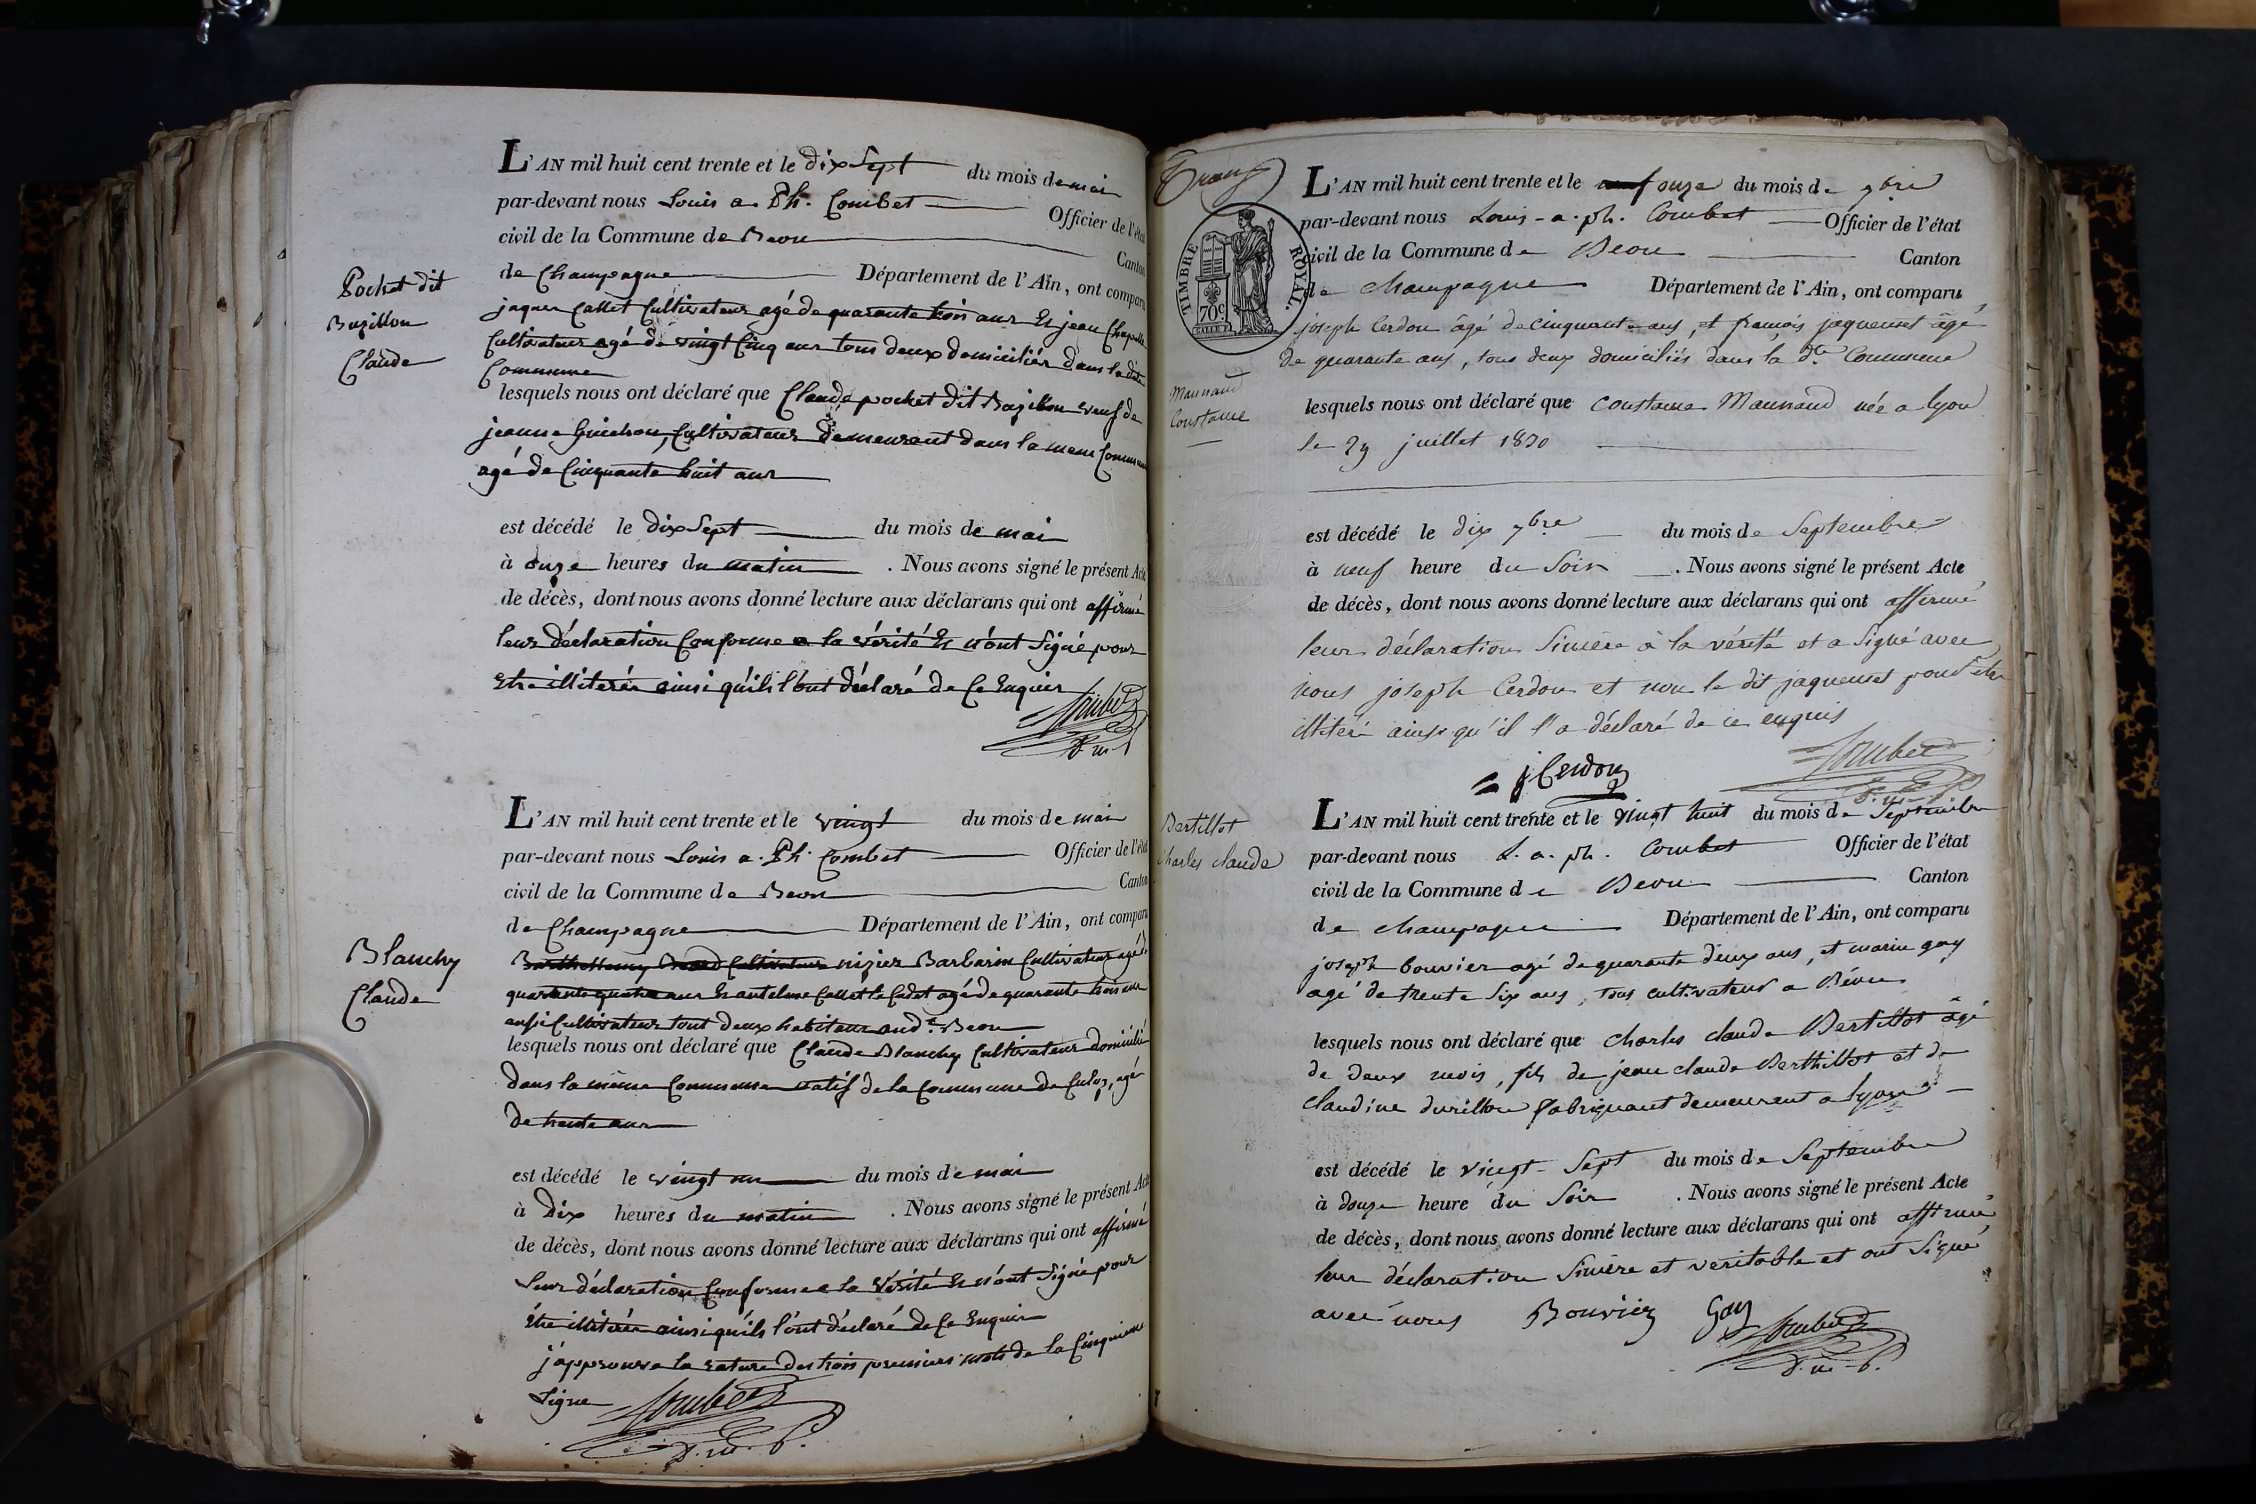 L'AN mil huit cent trente et le dix Sept du mois de mai
par-devant nous Louis a. Ph. Combet Officier de l'état
civil de la Commune de Beon Canton
de Champagne Département de l'Ain, ont comparu
Pochet dit
Bazillon
Claude
jaques Callet Cultivateur agé de quarante trois ans Et jean Chapelle
Cultivateur agé de vingt Cinq ans tous deux domiciliés dans la dite
Commune
lesquels nous ont déclaré que Claude pochet dit Bazillon veuf de
jeanne Guichon, Cultivateur Demeurant dans la meme Commune
agé de Cinquante huit ans
est décédé le dix Sept du mois de mai
à onze heures du matin . Nous avons signé le présent Acte
de décès, dont nous avons donné lecture aux déclarans qui ont affirmé
leur déclaration Conforme a la vérité Et n'ont Signé pour
Etre illiterés ainsi qu'ils l'ont Déclaré de Ce Enquis
Combet
L'AN mil huit cent trente et le vingt du mois de mai
par-devant nous Louis a. Ph. Combet Officier de l'état
civil de la Commune de Beon Canton
de Champagne Département de l'Ain, ont comparu
Blanchy
Claude
Barthellemy Cultivateur nizier Barbarin Cultivateur agé de
quarante quatre ans Et antelme Callet le Cadet agé de quarante trois ans
aussi Cultivateur tout deux habitans aud.t Beon
lesquels nous ont déclaré que Claude Blanchy Cultivateur domicilié
dans la même Commune natif de la Commune de Culoz, agé
de trente ans
est décédé le vingt un du mois de mai
à Dix heures du matin . Nous avons signé le présent Acte
de décès, dont nous avons donné lecture aux déclarans qui ont affirmé
leur déclaration Conforme a la Vérité Et n'ont Signé pour
Etre illiterés ainsi qu'ils l'ont déclaré de Ce Enquis
j'approuve la rature des trois premiers mots de la Cinquieme
Ligne Combet
TIMBRE ROYAL.
70 c.
L'AN mil huit cent trente et le onze du mois de 7bre
par-devant nous Louis - a. ph. Combet Officier de l'état
civil de la Commune de Beon Canton
de champagne Département de l'Ain, ont comparu
joseph Cerdon âgé de cinquante ans, et françois jaquenet âgé
de quarante ans, tous deux domiciliés dans la dte Commune
Maunand
Constance
lesquels nous ont déclaré que Constance Maunand née a lyon
le 29 juillet 1830
est décédé le dix 7bre du mois de Septembre
à neuf heure du Soir . Nous avons signé le présent Acte
de décès, dont nous avons donné lecture aux déclarans qui ont affirmé
leur déclaration Sincère à la vérité et a Signé avec
nous joseph Cerdon et non le dit jaquenet pour être
illitéré ainsi qu'il l'a déclaré de ce enquis
j Cerdon Combet
Bertillot
Charles claude
L'AN mil huit cent trente et le Vingt huit du mois de Septembre
par-devant nous L. a. ph. Combet Officier de l'état
civil de la Commune de Beon Canton
de champagne Département de l'Ain, ont comparu
joseph bouvier agé de quarante deux ans, et marin gay
agé de trente Six ans, tous cultivateur a Béon
lesquels nous ont déclaré que Charles claude Bertillot âgé
de deux mois, fils de jean claude Berthillot et de
claudine durillon fabriquant demeurent a lyon
est décédé le vingt - Sept du mois de Septembre
à douze heure du Soir . Nous avons signé le présent Acte
de décès, dont nous avons donné lecture aux déclarans qui ont affirmé
leur déclaration Sincère et veritable et ont Signé
avec nous Bouvier Gay Combet